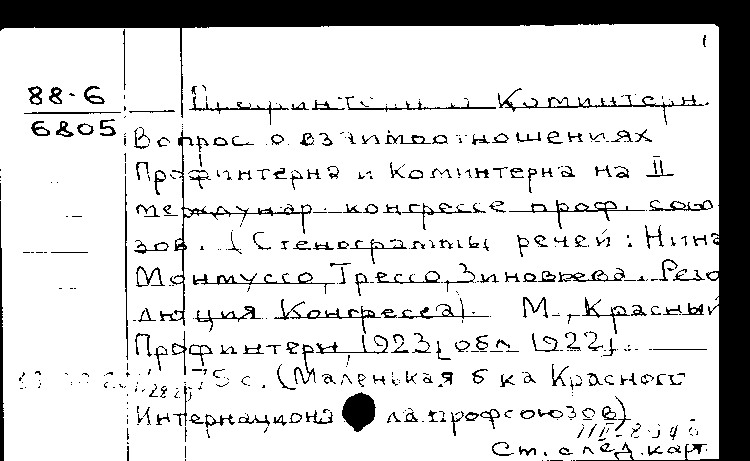 1
88-6
6805
Профинтерн и Коминтерн.
Вопрос о взаимоотношениях
Профинтерна и Коминтерна на II
междунар. конгрессе проф. сою
зов. (Стенограммы речей: Нина
Монмуссо, Трессо, Зиновьева. Резо
люция Конгресса). М., Красный
Профинтерн, 1923, обл 1922].
75 с. (Маленькая б ка Красного
Интернациона ла профсоюзов)
Ст. след. карт.